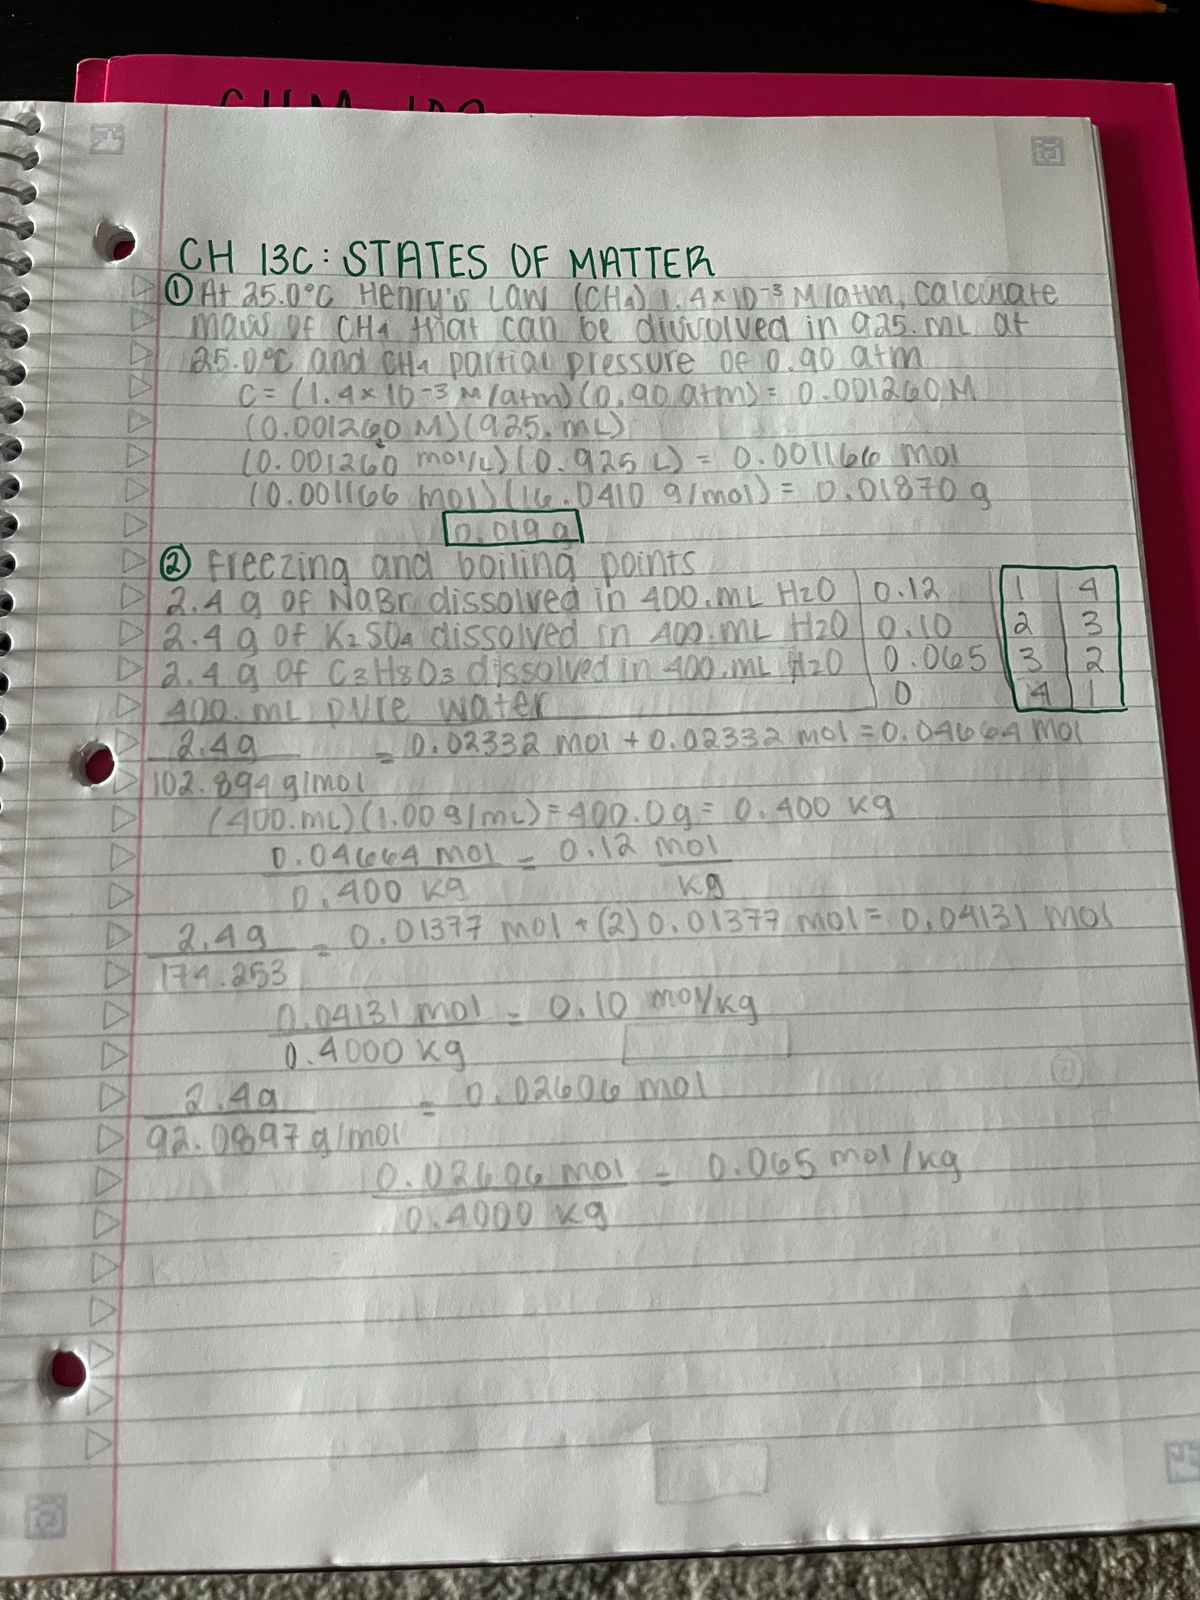 CHM 102
CH 13C: STATES OF MATTER
① At 25.0°C Henry's Law (CH4) 1.4×10⁻³ M/atm, calculate
mass of CH4 that can be dissolved in 925. mL at
25.0°C and CH4 partial pressure of 0.90 atm
C = (1.4×10⁻³ M/atm)(0.90 atm) = 0.001260 M
(0.001260 M)(925. mL)
(0.001260 mol/L)(0.925 L) = 0.001166 mol
(0.001166 mol)(16.0410 g/mol) = 0.01870 g
0.019 g
② freezing and boiling points
2.4 g of NaBr dissolved in 400. mL H2O 0.12 1 4
2.4 g of K2SO4 dissolved in 400. mL H2O 0.10 2 3
2.4 g of C3H8O3 dissolved in 400. mL H2O 0.065 3 2
400. mL pure water 0 4 1
2.4g = 0.02332 mol + 0.02332 mol = 0.04664 mol
102.894 g/mol
(400. mL)(1.00 g/mL) = 400.0g = 0.400 kg
0.04664 mol = 0.12 mol
0.400 kg kg
2.4g = 0.01377 mol + (2) 0.01377 mol = 0.04131 mol
174.253
0.04131 mol = 0.10 mol/kg
0.4000 kg
2.4g = 0.02606 mol
92.0897 g/mol
0.02606 mol = 0.065 mol/kg
0.4000 kg